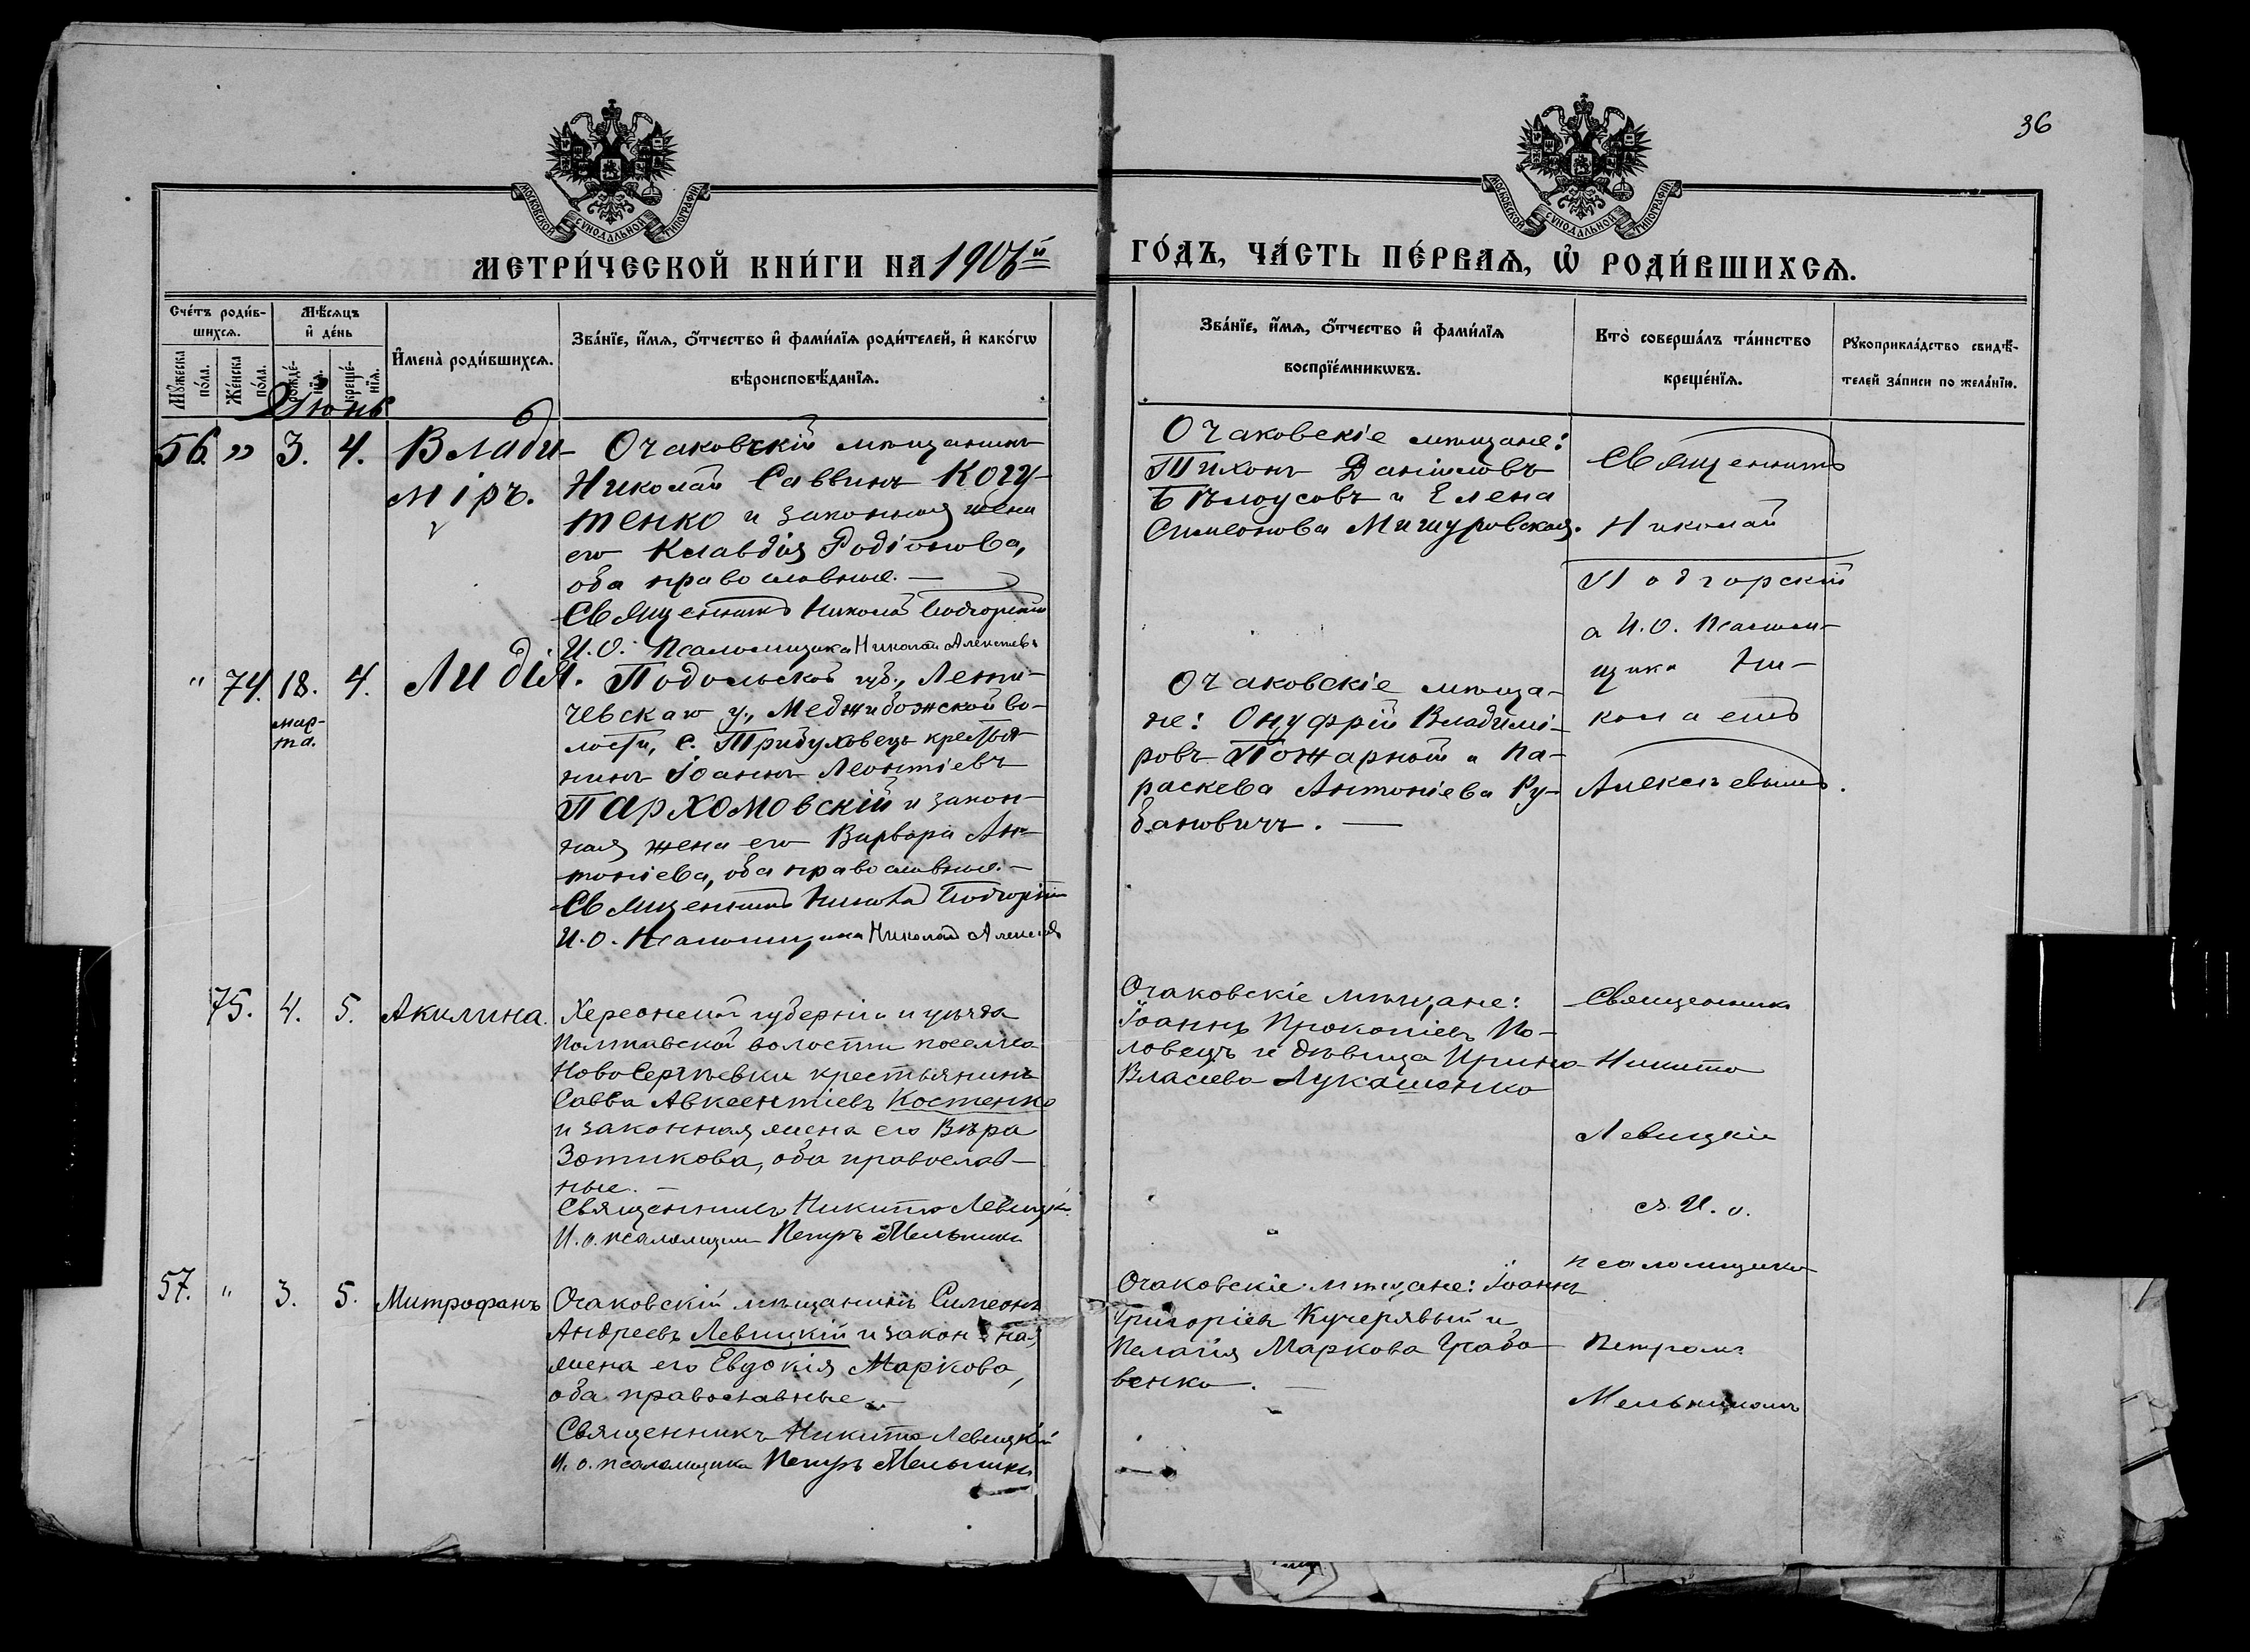 36
МОСКОВСКОЙ СѴНОДАЛЬНОЙ ТИПОГРАФІИ
МОСКОВСКОЙ СѴНОДАЛЬНОЙ ТИПОГРАФІИ
МЕТРИ́ЧЕСКОЙ КНИ́ГИ НА 1906й
ГО́ДЪ, ЧА́СТЬ ПЕ́РВАѦ, Ѡ҆ РОДИ́ВШИХСѦ.
Сче́тъ роди́в-
шихсѧ.
Мꙋ́жеска по́ла.
Же́нска по́ла.
Мѣ́сѧцъ
и҆ де́нь
рожде́-
нїѧ.
креще́-
нїѧ.
И҆мена̀ роди́вшихсѧ.
Зва́нїе, и҆́мѧ, ѻ҆́тчество и҆ фами́лїѧ роди́телей, и҆ како́гѡ
вѣроисповѣ́данїѧ.
Зва́нїе, и҆́мѧ, ѻ҆́тчество и҆ фами́лїѧ
воспрїе́мникѡвъ.
Кто̀ соверша́лъ та́инство
креще́нїѧ.
Рꙋкоприкла́дство свидѣ́-
телей за́писи по жела́нїю.
Июнь
56. " 3. 4. Влади-
міръ.
Очаковскій мѣщанинъ
Николай Саввинъ Когу-
тенко и законная жена
его Клавдія Родіонова,
оба православные. —
Священникъ Николай Подгорскій
И.О. Псаломщика Николай Алексѣевъ
Очаковскіе мѣщане:
Тихонъ Даніиловъ
Бѣлоусовъ и Елена
Симеонова Мишуровская.
Священникъ
Николай
Подгорскій
а И.О. Псалом-
щика Ни-
колаемъ
Алексѣевымъ.
" 74. 18. 4. Лидія.
мар-
та.
Подольской губ., Лети-
чевскаго у., Меджибожской во-
лости, с. Трибуховецъ крестья-
нинъ Іоаннъ Леонтіевъ
Пархомовскій и закон-
ная жена его Варвара Ан-
тоніева, оба православные. —
Священникъ Николай Подгорскій
И.О. Псаломщика Николай Алексѣевъ
Очаковскіе мѣща-
не: Онуфрій Владимі-
ровъ Пожарный и Па-
раскева Антоніева Ру-
бановичъ. —
75. 4. 5. Акилина.
Херсонской губерніи и уѣзда
Полтавской волости поселка
НовоСергѣевки крестьянинъ
Савва Авксентіевъ Костенко
и законная жена его Вѣра
Зотикова, оба православ-
ные. —
Священникъ Никита Левицкій
И. о. псаломщика Петръ Мельникъ
Очаковскіе мѣщане:
Іоаннъ Прокопіевъ По-
ловецъ и дѣвица Ирина
Власіева Лукашенко
Священникъ
Никита
Левицкій
съ И. о.
псаломщика
Петромъ
Мельникомъ
57. " 3. 5. Митрофанъ
Очаковскій мѣщанинъ Симеонъ
Андреевъ Левицкій и законная
жена его Евдокія Маркова,
оба православные. —
Священникъ Никита Левицкій
И. о. псаломщика Петръ Мельникъ
Очаковскіе мѣщане: Іоаннъ
Григоріевъ Кучерявый и
Пелагія Маркова Граба-
венко. —